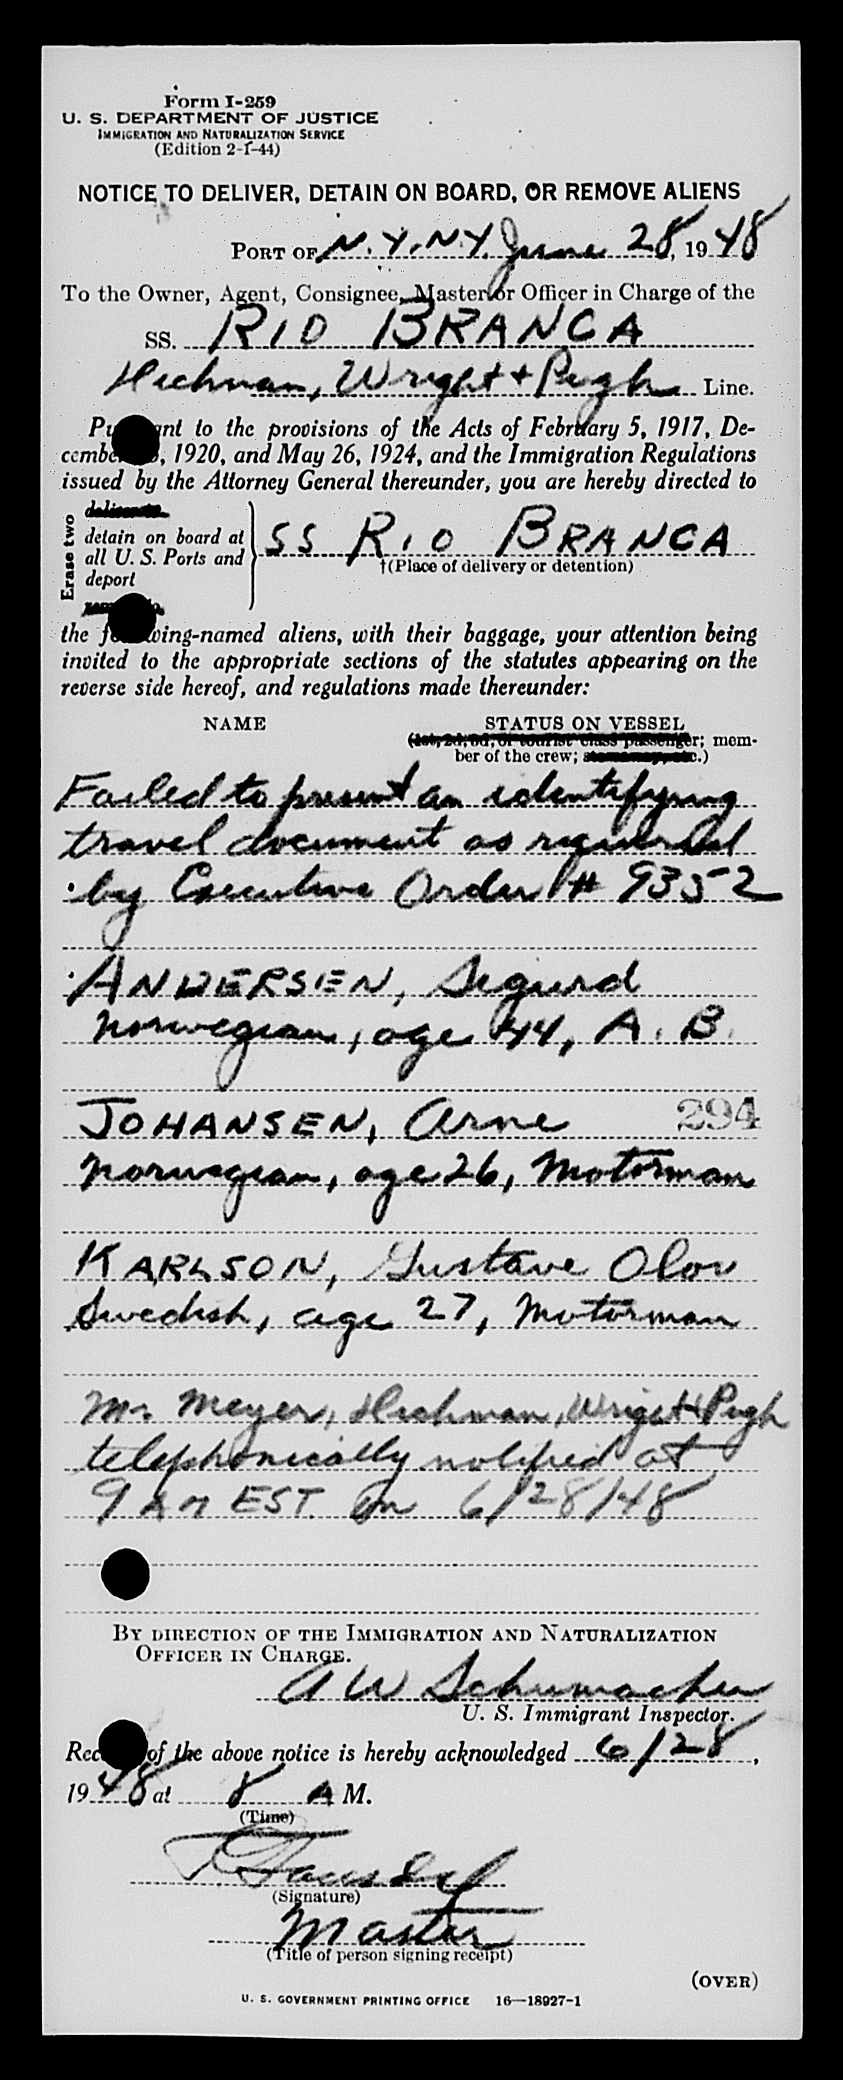 Form I-259
U. S. DEPARTMENT OF JUSTICE
IMMIGRATION AND NATURALIZATION SERVICE
(Edition 2-1-44)
NOTICE TO DELIVER, DETAIN ON BOARD, OR REMOVE ALIENS
PORT OF N.Y. N.Y. June 28, 1948
To the Owner, Agent, Consignee, Master or Officer in Charge of the
SS. RIO BRANCA
Hichman, Wright + Pugh Line.
to the provisions of the Acts of February 5, 1917, De-
, 1920, and May 26, 1924, and the Immigration Regulations
issued by the Attorney General thereunder, you are hereby directed to
Erase two
detain on board at
all U. S. Ports and
deport
SS RIO BRANCA
†(Place of delivery or detention)
the following-named aliens, with their baggage, your attention being
invited to the appropriate sections of the statutes appearing on the
reverse side hereof, and regulations made thereunder:
NAME STATUS ON VESSEL
(1st, 2d, 3d, or tourist class passenger; mem-
ber of the crew; .)
Failed to present an identifying
travel document as required
by Executive Order # 9352
ANDERSEN, Sigurd
Norwegian, age 44, A. B.
JOHANSEN, Arne 294
Norwegian, age 26, Motorman
KARLSON, Gustave Olov
Swedish, age 27, Motorman
Mr. Meyer, Hichman, Wright & Pugh
telephonically notified at
9 AM EST. on 6/28/48
BY DIRECTION OF THE IMMIGRATION AND NATURALIZATION
OFFICER IN CHARGE.
A W Schumacher
U. S. Immigrant Inspector.
of the above notice is hereby acknowledged 6/28,
1948 at 8 A M.
(Time)
(Signature)
Master
(Title of person signing receipt)
(OVER)
U. S. GOVERNMENT PRINTING OFFICE 16—18927-1